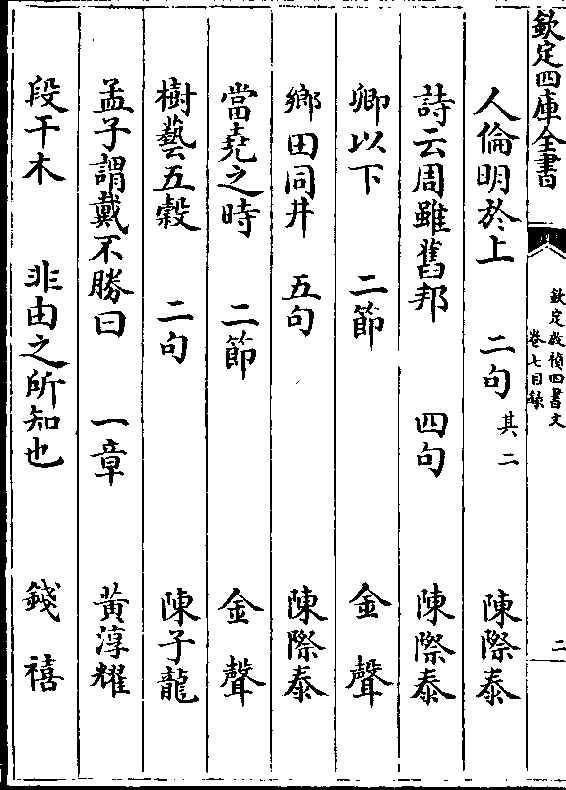 欽定四庫全書
欽定啟禎四書文
卷七目錄
二
人倫明於上 二句 其二 陳際泰
詩云周雖舊邦 四句 陳際泰
卿以下 二節 金聲
鄉田同井 五句 陳際泰
當堯之時 二節 金聲
樹藝五穀 二句 陳子龍
孟子謂戴不勝曰 一章 黃淳耀
段干木 非由之所知也 錢禧